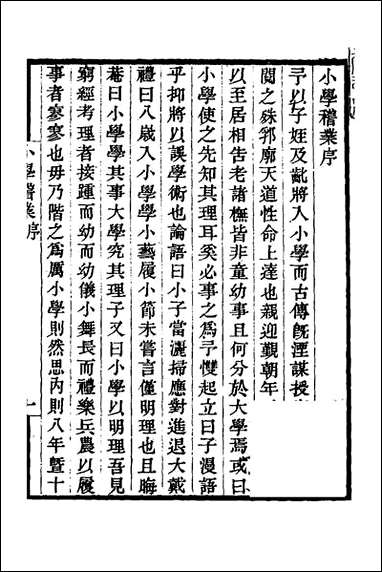 小學稽業序
予以子姪及齔將入小學而古傳旣湮謀授
閱之殊邪廓天道性命上達也親迎覲朝年
以至居相告老諸憮皆非童幼事且何分於大學焉或曰
小學使之先知其理耳奚必事之爲予戄起立曰子漫語
乎抑將以誤學術也論語曰小子當灑掃應對進退大戴
禮曰八歲入小學學小藝履小節未嘗言僅明理也且晦
菴曰小學學其事大學究其理子又曰小學以明理吾見
窮經考理者接踵而幼而幼儀小舞長而禮樂兵農以履
事者寥寥也毋乃階之爲厲小學則然思內則八年曁十
小學稽業序
一